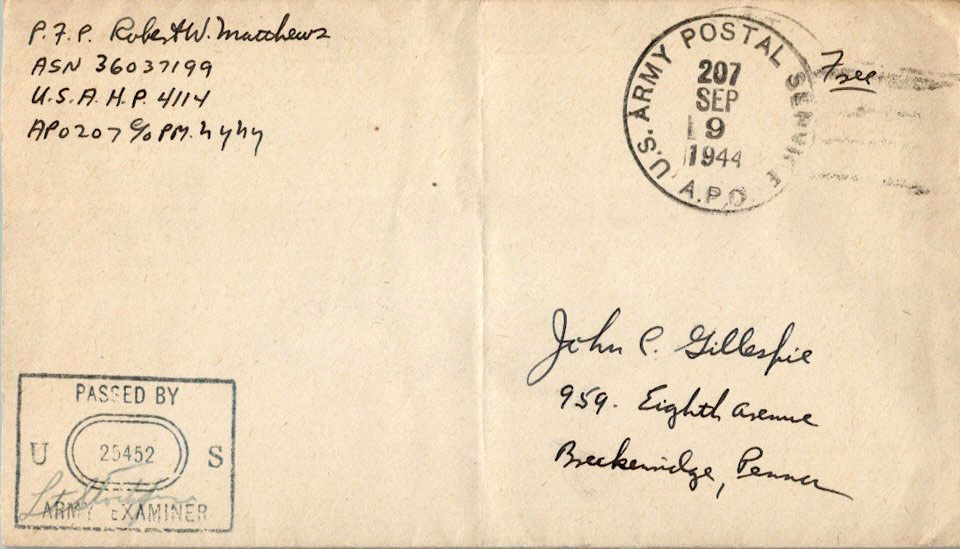 P.F.C. Robert W. Matthews
ASN 36037199
U.S.A.H.P. 4114
APO 207 c/o PM. N Y N Y
U.S. ARMY POSTAL SERVICE
207
SEP
9
1944
A.P.O
Free
John C. Gillespie
959. Eighth Avenue
Breckenridge, Penna
PASSED BY
U 25452 S
ARMY EXAMINER